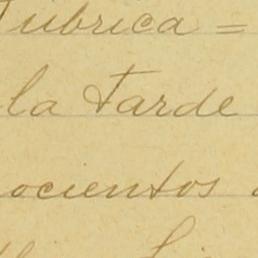 rubrica =
la tarde
ocientos